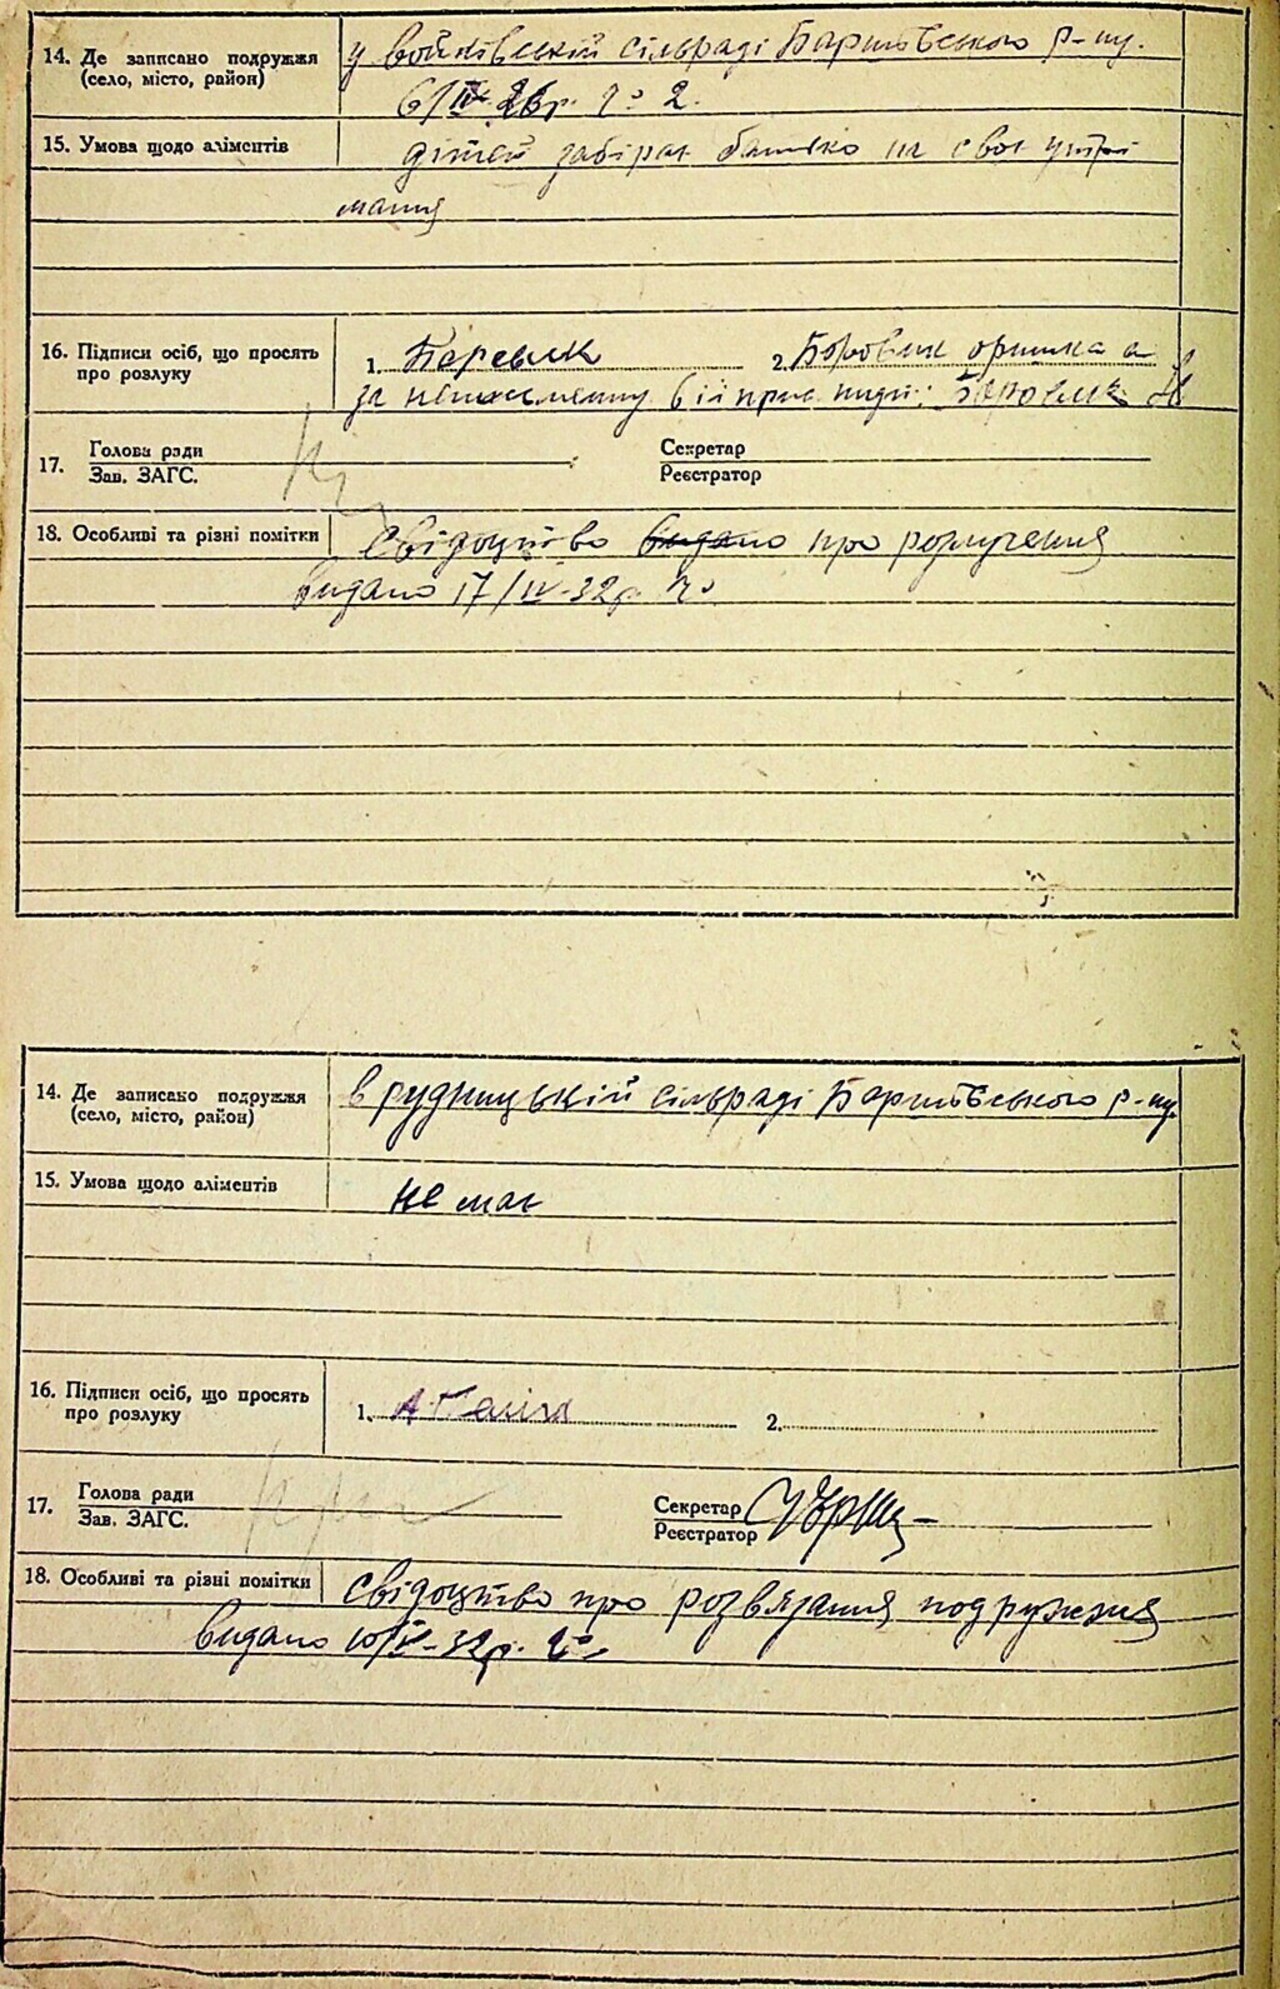 14. Де записано подружжя
(село, місто, район)
у войківській сільраді Баришівського р-ну.
6/IV 26р. № 2.
15. Умова щодо аліментів
дітей забірає батько на своє утрі
мання
16. Підписи осіб, що просять
про розлуку
1. Боровик
2. Боровик оришка а
за неписьменну в її присутн: Боровик
17. Голова ради
Зав. ЗАГС.
Секретар
Реєстратор
18. Особливі та різні помітки
Свідоцтво видано про розлучення
видано 17/IV-32р. №
14. Де записано подружжя
(село, місто, район)
в рудницькій сільраді Баришівського р-ну.
15. Умова щодо аліментів
не має
16. Підписи осіб, що просять
про розлуку
1.
2.
17. Голова ради
Зав. ЗАГС.
Секретар
Реєстратор
18. Особливі та різні помітки
свідоцтво про розвязання подружжя
видано 10/IV-32р. №